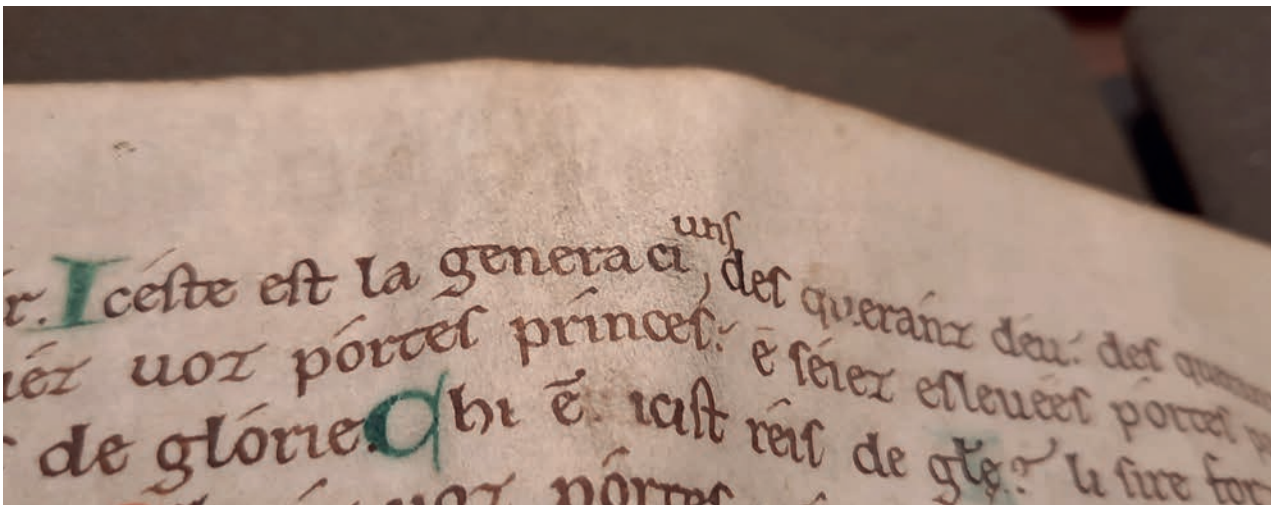 uns
r. Iceste est la generaci, des queránz déu: des
iéz uoz pórtes prínces: ē séiez esleuées pórtes
de glórie. Qhi ē icist réis de glē? li sire for
uoz pórtes